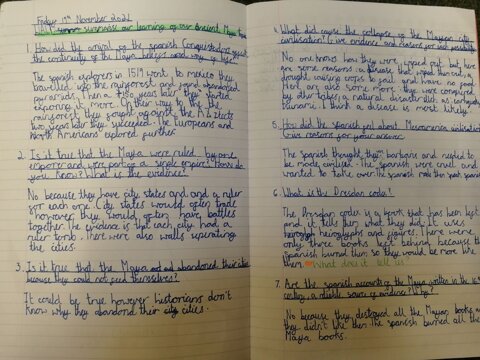 Friday 19th November 2021
LO: summarise our learning of our Ancient Maya topic
1. How did the arrival of the Spanish Conquistadors affect
the continuity of the Maya beliefs and way of life?
The Spanish explorers in 1517 went to mexico they
travelled into the rainforest and found abandoned
pyramids. Then a two years later they started
exploring it more. On their way to the
rainforest they fought against the Aztects
two years later they succeeded. The Europeans and
North Americans explored further.
2. Is it true that the Maya were ruled by one
emperor and were part of a single empire? How do
you know? What is the evidence?
No because they have city states and and a ruler
for each one. City states would often trade
however they would often have battles
together. The evidence is that each city had a
ruler tomb. There were also walls seperating
the cities.
3. Is it true that the Maya abandoned their cities
because they could not feed themselves?
It could be true however historians don't
know why they abandond their cities.
4. What did cause the collapse of the Mayan
civilisation? Give evidence and reasons for each possibility
No one knows how they were wiped out but here
are some reasons: a disease that wiped them out, a
drought causing crops to fail and have no food.
Here are also some more: they were conquered
by other tribes, a natural disaster such as earthquake
tsunami. I think a disease is most likely.
5. How did the Spanish feel about Mesoamerican civilisation?
Give reasons for your answer.
The Spanish thought they were barbians and needed to
be made civilised. The Spanish were cruel and
wanted to take over the Spanish
6. What is the Dresdan codex?
The Dresdan codex is a book that has been left
and it tells them what they did. It uses
through heiroglyphs and figures. There were
only three books left behind because the
Spanish burned them so they would be more like
them. What does it tell us?
7. Are the Spanish accounts of the Maya written in the 16th
century a reliable source of evidence? Why?
No because they destroyed all the Mayan books as
they didn't like them. The Spanish burned all the
Maya books.